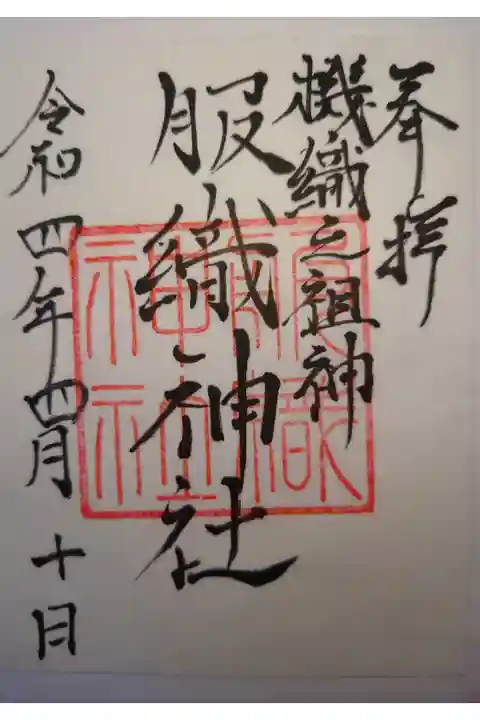 奉拝
機織之祖神
服織神社
令和四年四月十日
服織
神社